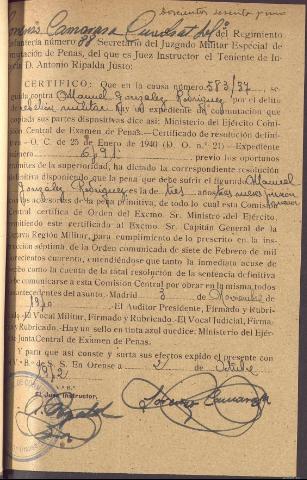 Doscientos sesenta y uno
Camarasa del Regimiento
Infantería número 88 Secretario del Juzgado Militar Especial de
mutación de Penas, del que es Juez Instructor el Teniente de In
D. Antonio Ripalda Justo:
CERTIFICO: Que en la causa número 583/37
guida contra Manuel Gonzalez Rodriguez, por el delito
rebelión militar hay un expediente de conmutación que
opiado sus partes dispositivas dice así: Ministerio del Ejército Comi
n Central de Examen de Penas.—Certificado de resolución defini
a.—O. C. de 25 de Enero de 1940 (D. O. n.º 21)—Expediente
número previo los oportunos
mites de la superioridad, ha dictado la correspondiente resolución
finitiva disponiendo que la pena que debe sufrir el figurado Manuel
Gonzalez Rodriguez es la de tres años
accesorias de la pena primitiva, de todo lo cual esta Comisión
ntral certifica de Orden del Excmo. Sr. Ministro del Ejército,
mitiendo este certificado al Excmo. Sr. Capitán General de la
tava Región Militar, para cumplimiento de lo prescrito en la ins
cción séptima, de la Orden comunicada de siete de Febrero de mil
vecientos cuarenta, entendiéndose que tanto la inmediata acuse de
cibo como la cuenta de la total resolución de la sentencia definitiva
de comunicarse a esta Comisión Central por obrar en la misma todos
antecedentes del asunto.-Madrid 3 de Noviembre de
El Auditor Presidente, Firmado y Rubri-
El Vocal Militar, Firmado y Rubricado.-El Vocal Judicial, Firma-
y Rubricado.-Hay un sello en tinta azul quedice: Ministerio del Ejér-
Junta Central de Examen de Penas.
Y para que así conste y surta sus efectos expido el presente con
V.º B.º de S. S. En Orense a 2 de Octubre
V.º B.º
El Juez Instructor,
A. Ripalda
Camarasa